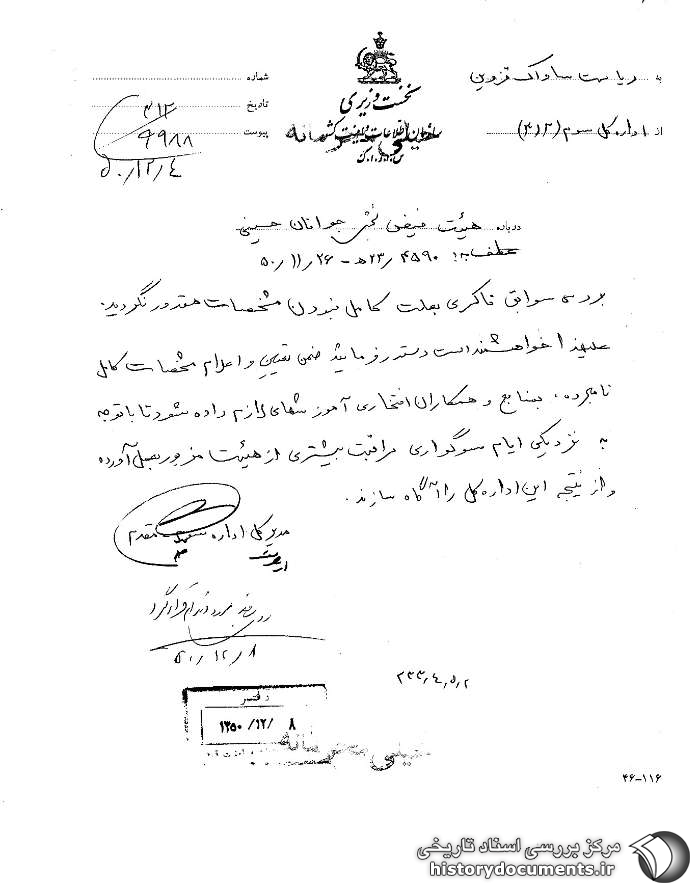 به ریاست ساواک قزوین
از اداره کل سوم (۳۱۲)
نخست وزیری
سازمان اطلاعات و امنیت کشور
س.ا.و.ا.ک
خیلی محرمانه
شماره
تاریخ
پیوست
۳۱۲
۹۹۸۸
۵۰/۱۲/۴
درباره هیئت فیض بخش جوانان حسینی
عطف به: ۴۵۹۰/۲۳ه - ۵۰/۱۱/۲۶
بررسی سوابق ذاکری بعلت کامل نبودن مشخصات مقدور نگردید.
علیهذا خواهشمند است دستور فرمایید ضمن تعیین و اعلام مشخصات کامل
نامبرده، بمنابع و همکاران افتخاری آموزشهای لازم داده شود تا با توجه
به نزدیکی ایام سوگواری مراقبت بیشتری از هیئت مزبور بعمل آورده
و از نتیجه این اداره کل را آگاه سازند.
مدیر کل اداره سوم مقدم
۵۰/۱۲/۸
۲۳۳,۴,۵,۲
دفتر
۱۳۵۰/۱۲/ ۸
خیلی محرمانه
۴۶-۱۱۶
مرکز بررسی اسناد تاریخی
historydocuments.ir